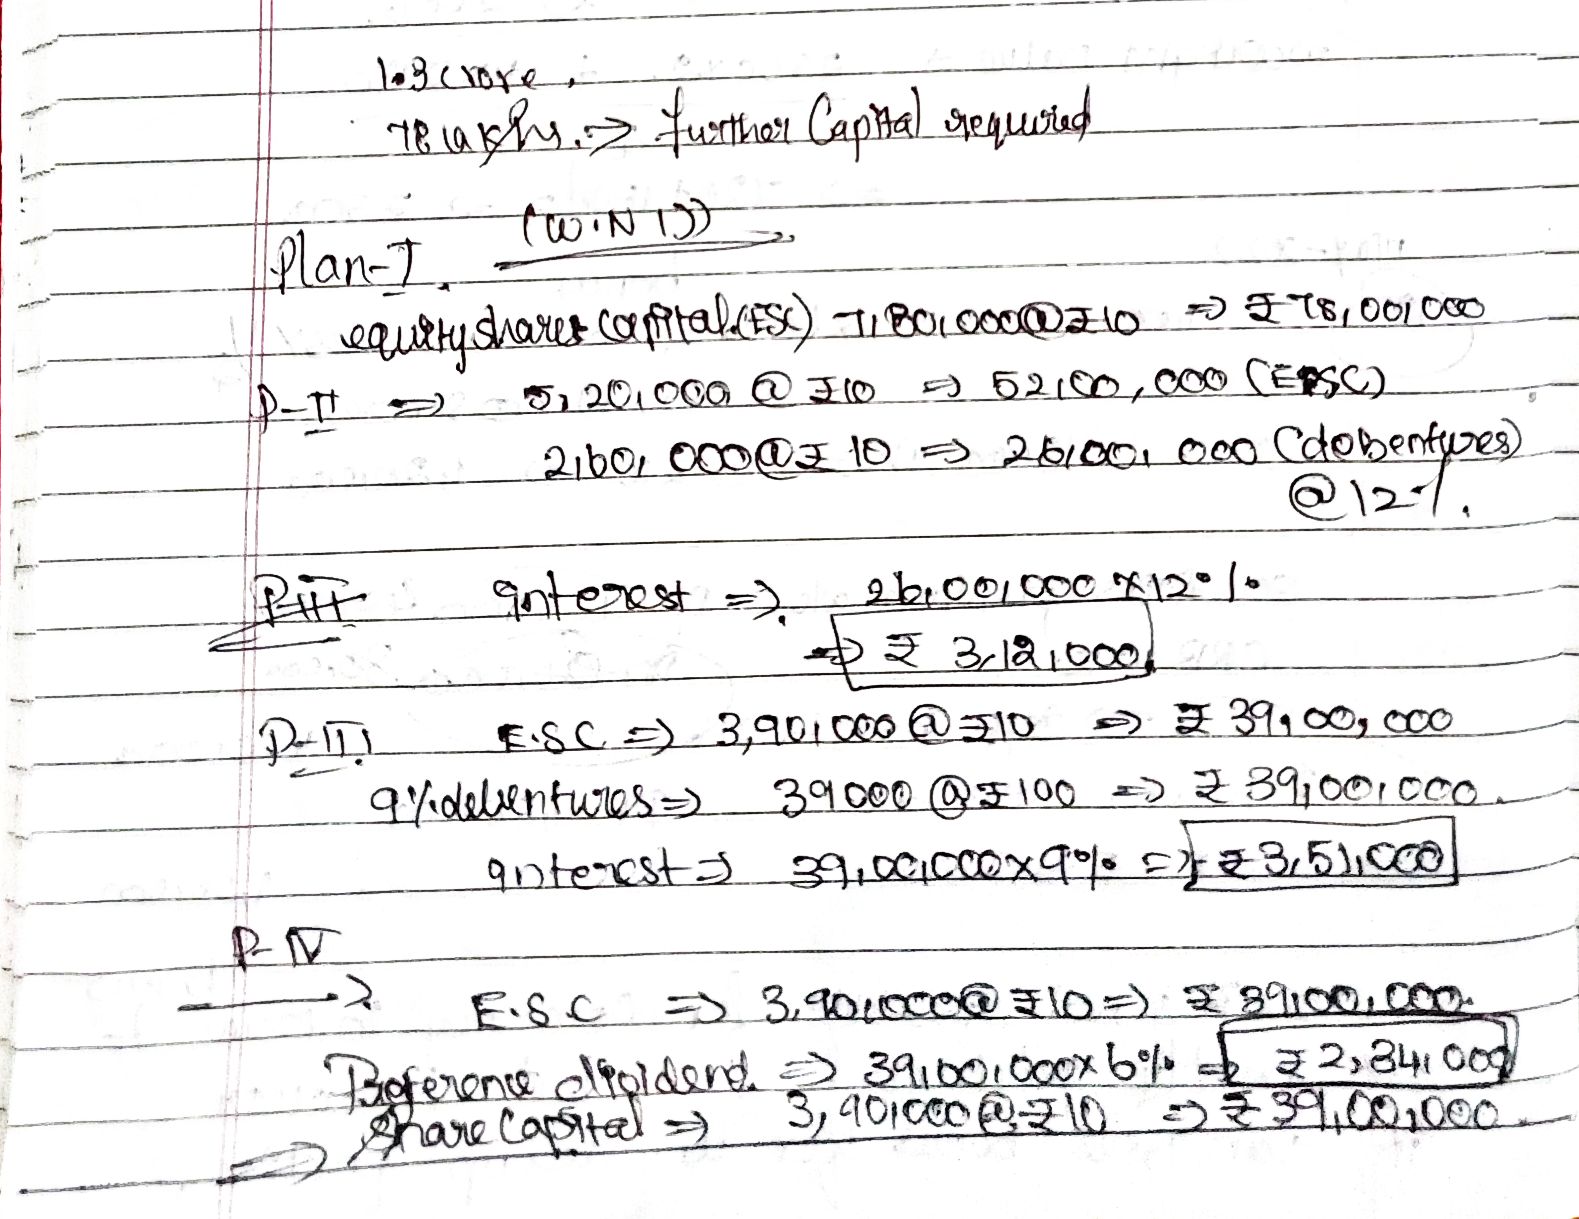 1.3 crore.
78 lakhs. => further Capital required
(W.N 1))
Plan-I.
equity shares capital.(ESC) - 7,80,000@₹10 => ₹78,00,000
P-II => 5,20,000 @ ₹10 => 52,00,000 (EPSC)
2,60,000@₹10 => 26,00,000 (debentures)
@12%.
P-III interest => 26,00,000 x 12%
=> ₹ 3,12,000
P-III E.SC => 3,90,000@₹10 => ₹ 39,00,000
9% debentures => 39000 @₹100 => ₹ 39,00,000.
interest => 39,00,000x9% => ₹3,51,000
P-IV
E.S.C => 3,90,000@ ₹10 => ₹ 39,00,000.
Preference dividend. => 39,00,000x6% => ₹ 2,34,000
Share Capital => 3,90,000 @ ₹10 => ₹ 39,00,000.